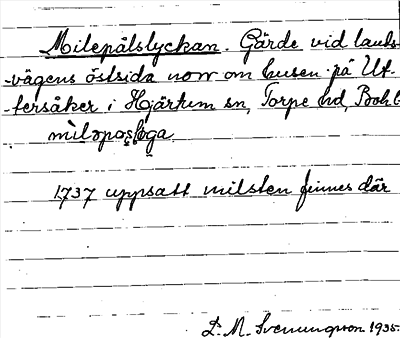 Milepålslyckan. Gärde vid lands-
-vägens östsida norr om husen på Ut-
-tersåker i Hjärtum sn, Torpe hd, Bohl
1737 uppsatt milsten finnes där
D. M. Svenungsson 1935.